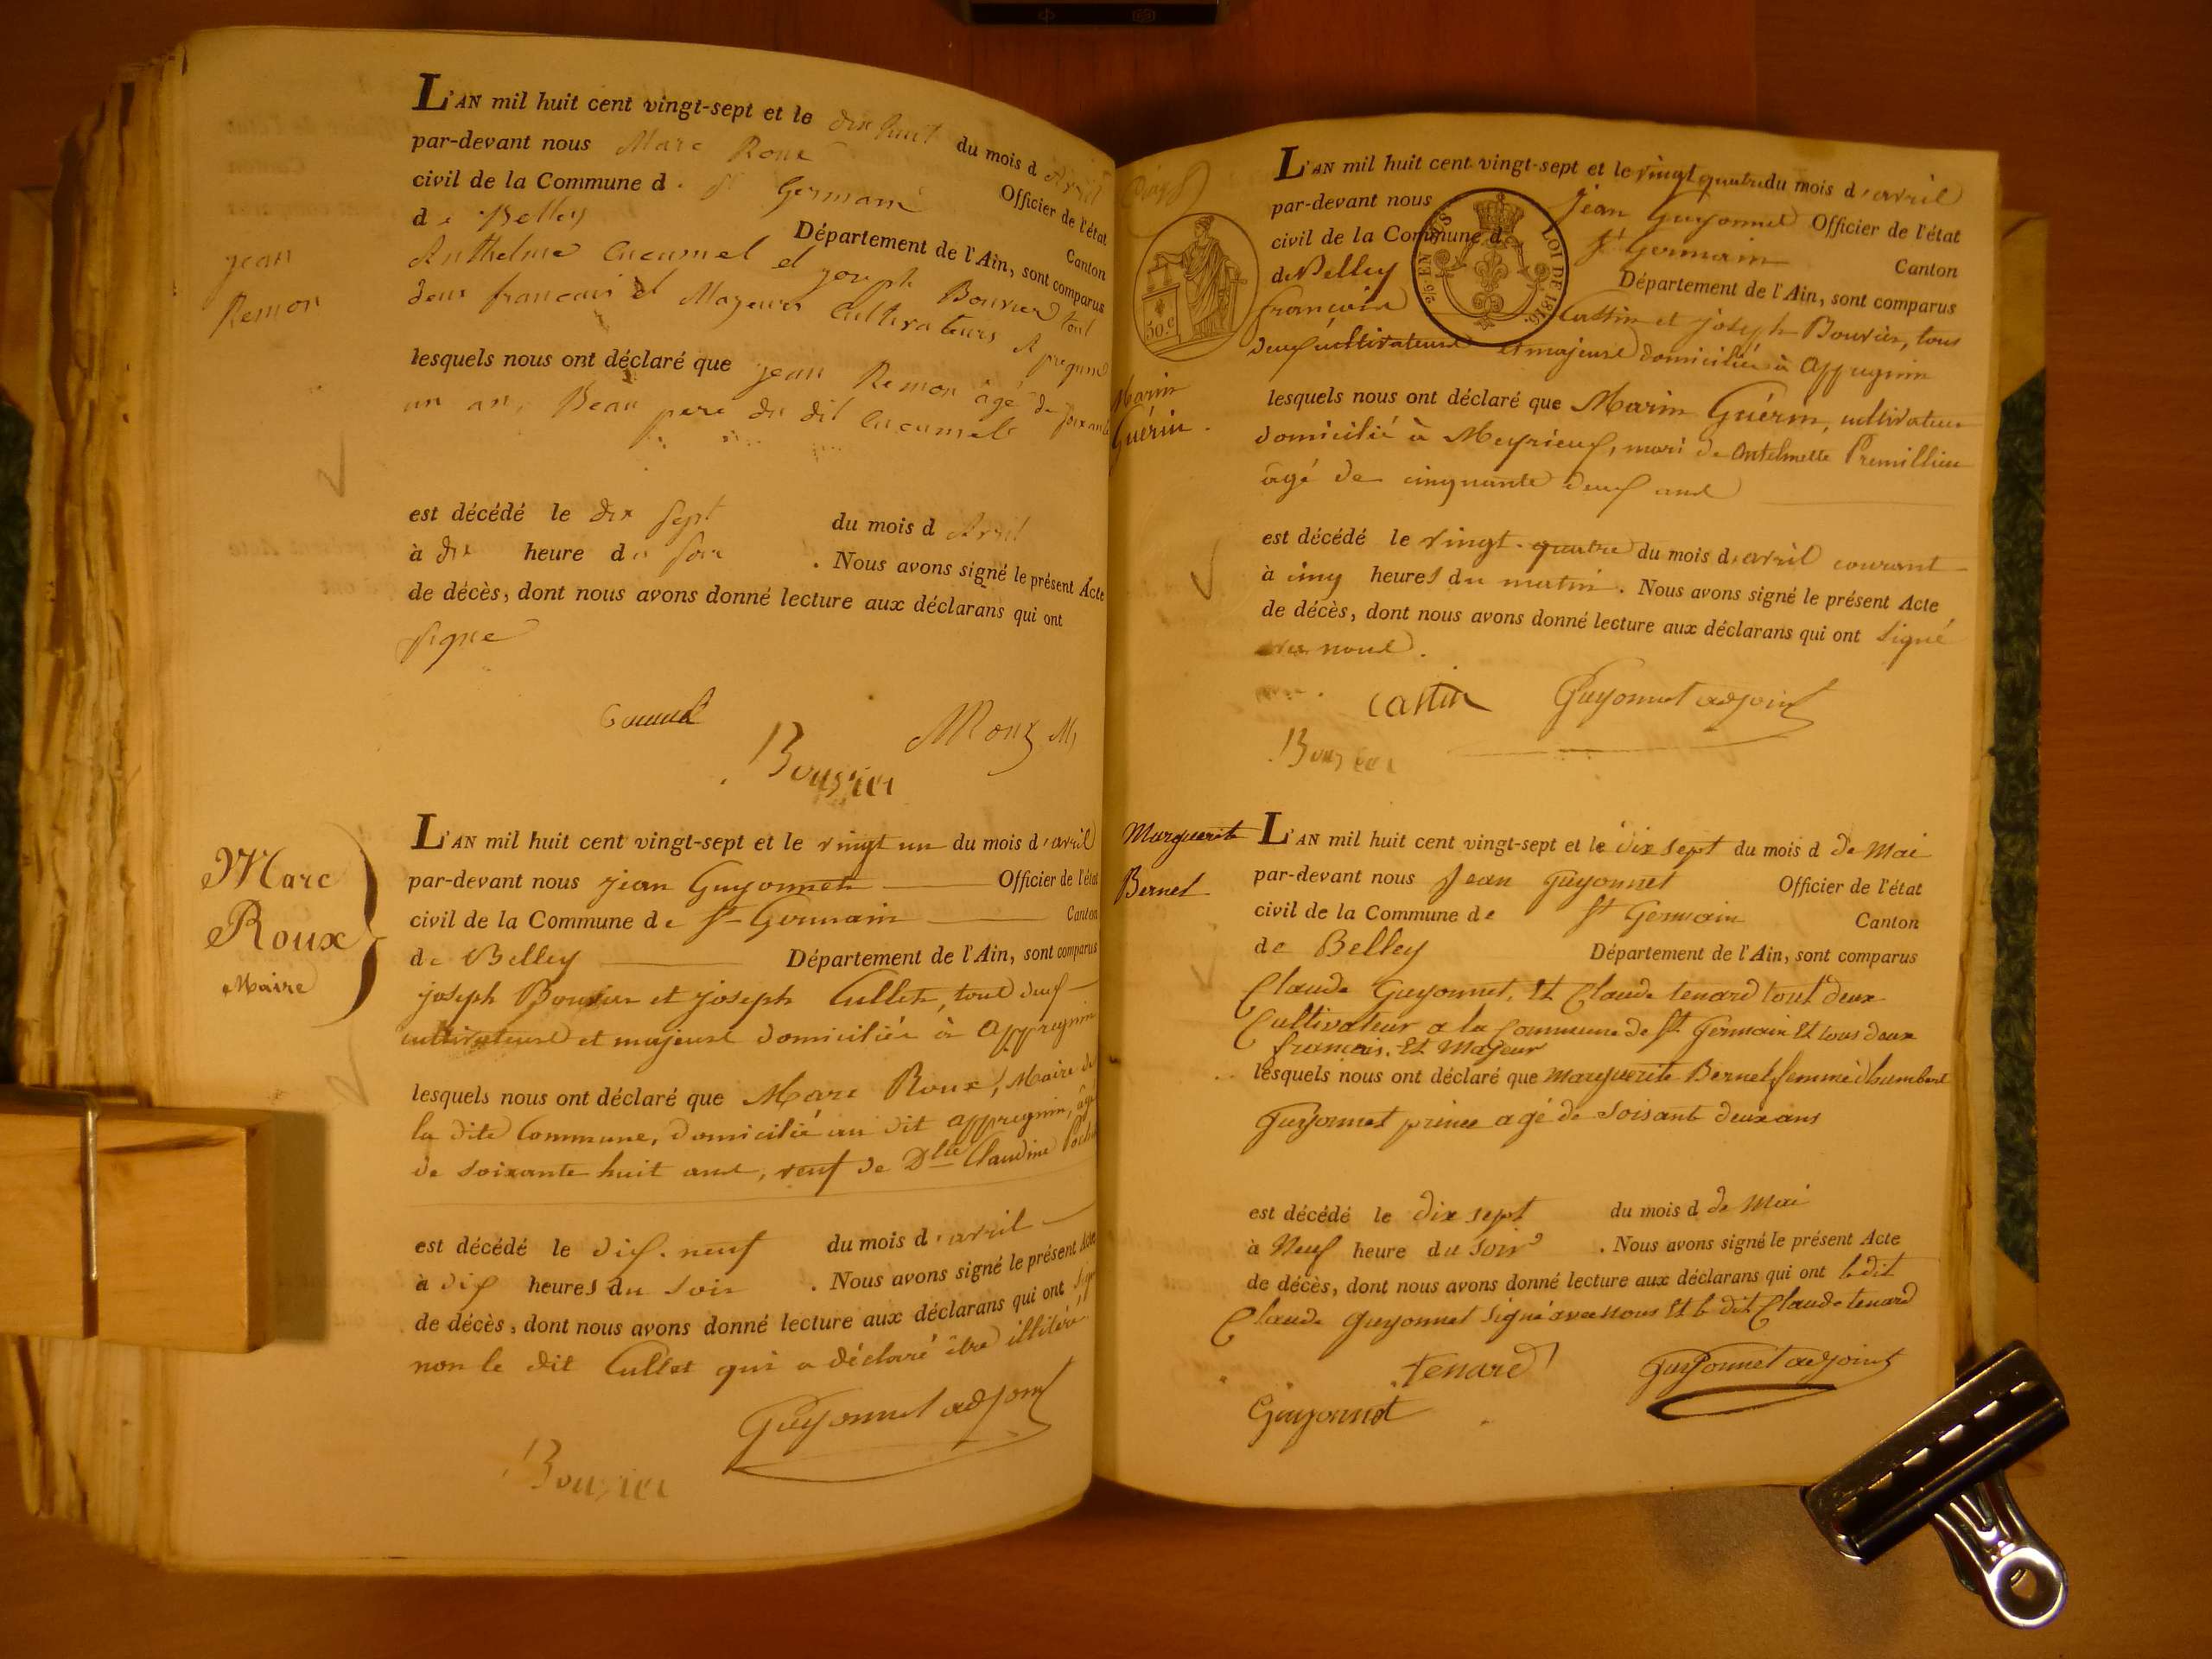 L'AN mil huit cent vingt-sept et le dix huit du mois d Avril
par-devant nous Marc Roux Officier de l'état
civil de la Commune d. St Germain Canton
de Belley Département de l'Ain, sont comparus
Anthelme Cucumel et joseph Bouvier tout
deux francais et Mageurs Cultivateurs
jean
Remon
lesquels nous ont déclaré que jean Remon âgé de soixante
un an, Beau pere du dit Cucumel
est décédé le dix sept du mois d Avril
à dix heure du soir . Nous avons signé le présent Acte
de décès, dont nous avons donné lecture aux déclarans qui ont
signe
Bouvier MRoux M
Marc
Roux
Maire
L'AN mil huit cent vingt-sept et le vingt un du mois d'avril
par-devant nous jean Guyonnet Officier de l'état
civil de la Commune de St Germain Canton
de Belley Département de l'Ain, sont comparus
joseph Bouvier et joseph Cullet, tous deux
cultivateurs et majeurs domiciliés à Appregnin
lesquels nous ont déclaré que Marc Roux, Maire de
la dite Commune, domicilié au dit appregnin, âgé
de soixante huit ans, veuf de Dlle Claudine
est décédé le dix-neuf du mois d'avril
à dix heures du soir . Nous avons signé le présent Acte
de décès, dont nous avons donné lecture aux déclarans qui ont signé
non le dit Cullet qui a déclaré être illitéré
Guyonnet adjoint
Bouvier
L'AN mil huit cent vingt-sept et le vingt quatre du mois d'avril
par-devant nous jean Guyonnet Officier de l'état
civil de la Commune d St Germain Canton
de Belley Département de l'Ain, sont comparus
françois Castin et joseph Bouvier, tous
deux cultivateurs et majeurs domiciliés à Appregnin
50.c
EN SUS
LOI DE 1816.
Marin
Guérin.
lesquels nous ont déclaré que Marin Guérin, cultivateur
domicilié à Meyrieux, mari de Antelmette Premillieu
âgé de cinquante deux ans
est décédé le vingt-quatre du mois d'avril courant
à cinq heures du matin. Nous avons signé le présent Acte
de décès, dont nous avons donné lecture aux déclarans qui ont signé
avec nous.
Castin Guyonnet adjoint
Bouvier
Marguerite
Bernet
L'AN mil huit cent vingt-sept et le dix sept du mois d de Mai
par-devant nous Jean Guyonnet Officier de l'état
civil de la Commune de St Germain Canton
de Belley Département de l'Ain, sont comparus
Claude Guyonnet, Et Claude tenard tout deux
Cultivateur a la Commune de St Germain Et tous deux
francais. Et Majeur
lesquels nous ont déclaré que Marguerite Bernet femme dhumbert
Guyonnet prince agé de soisante deux ans
est décédé le dix sept du mois d de Mai
à Neuf heure du soir . Nous avons signé le présent Acte
de décès, dont nous avons donné lecture aux déclarans qui ont le dit
Claude Guyonnet signé avec nous Et le dit Claude tenard
tenard Guyonnet adjoint
Guyonnet